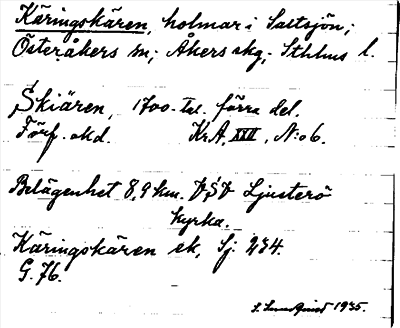 Käringskären, holmar i Saltsjön;
Österåkers sn; Åkers skg, Sthlms l.
Skiären, 1700-tal. förra del.
Förf. okd. Kr.A. XXII, N:o 6.
Belägenhet 8,9 km. VSV Ljusterö
kyrka.
Käringskären ek, Sj. 234.
G. 76.
S. Sundquist 1935.